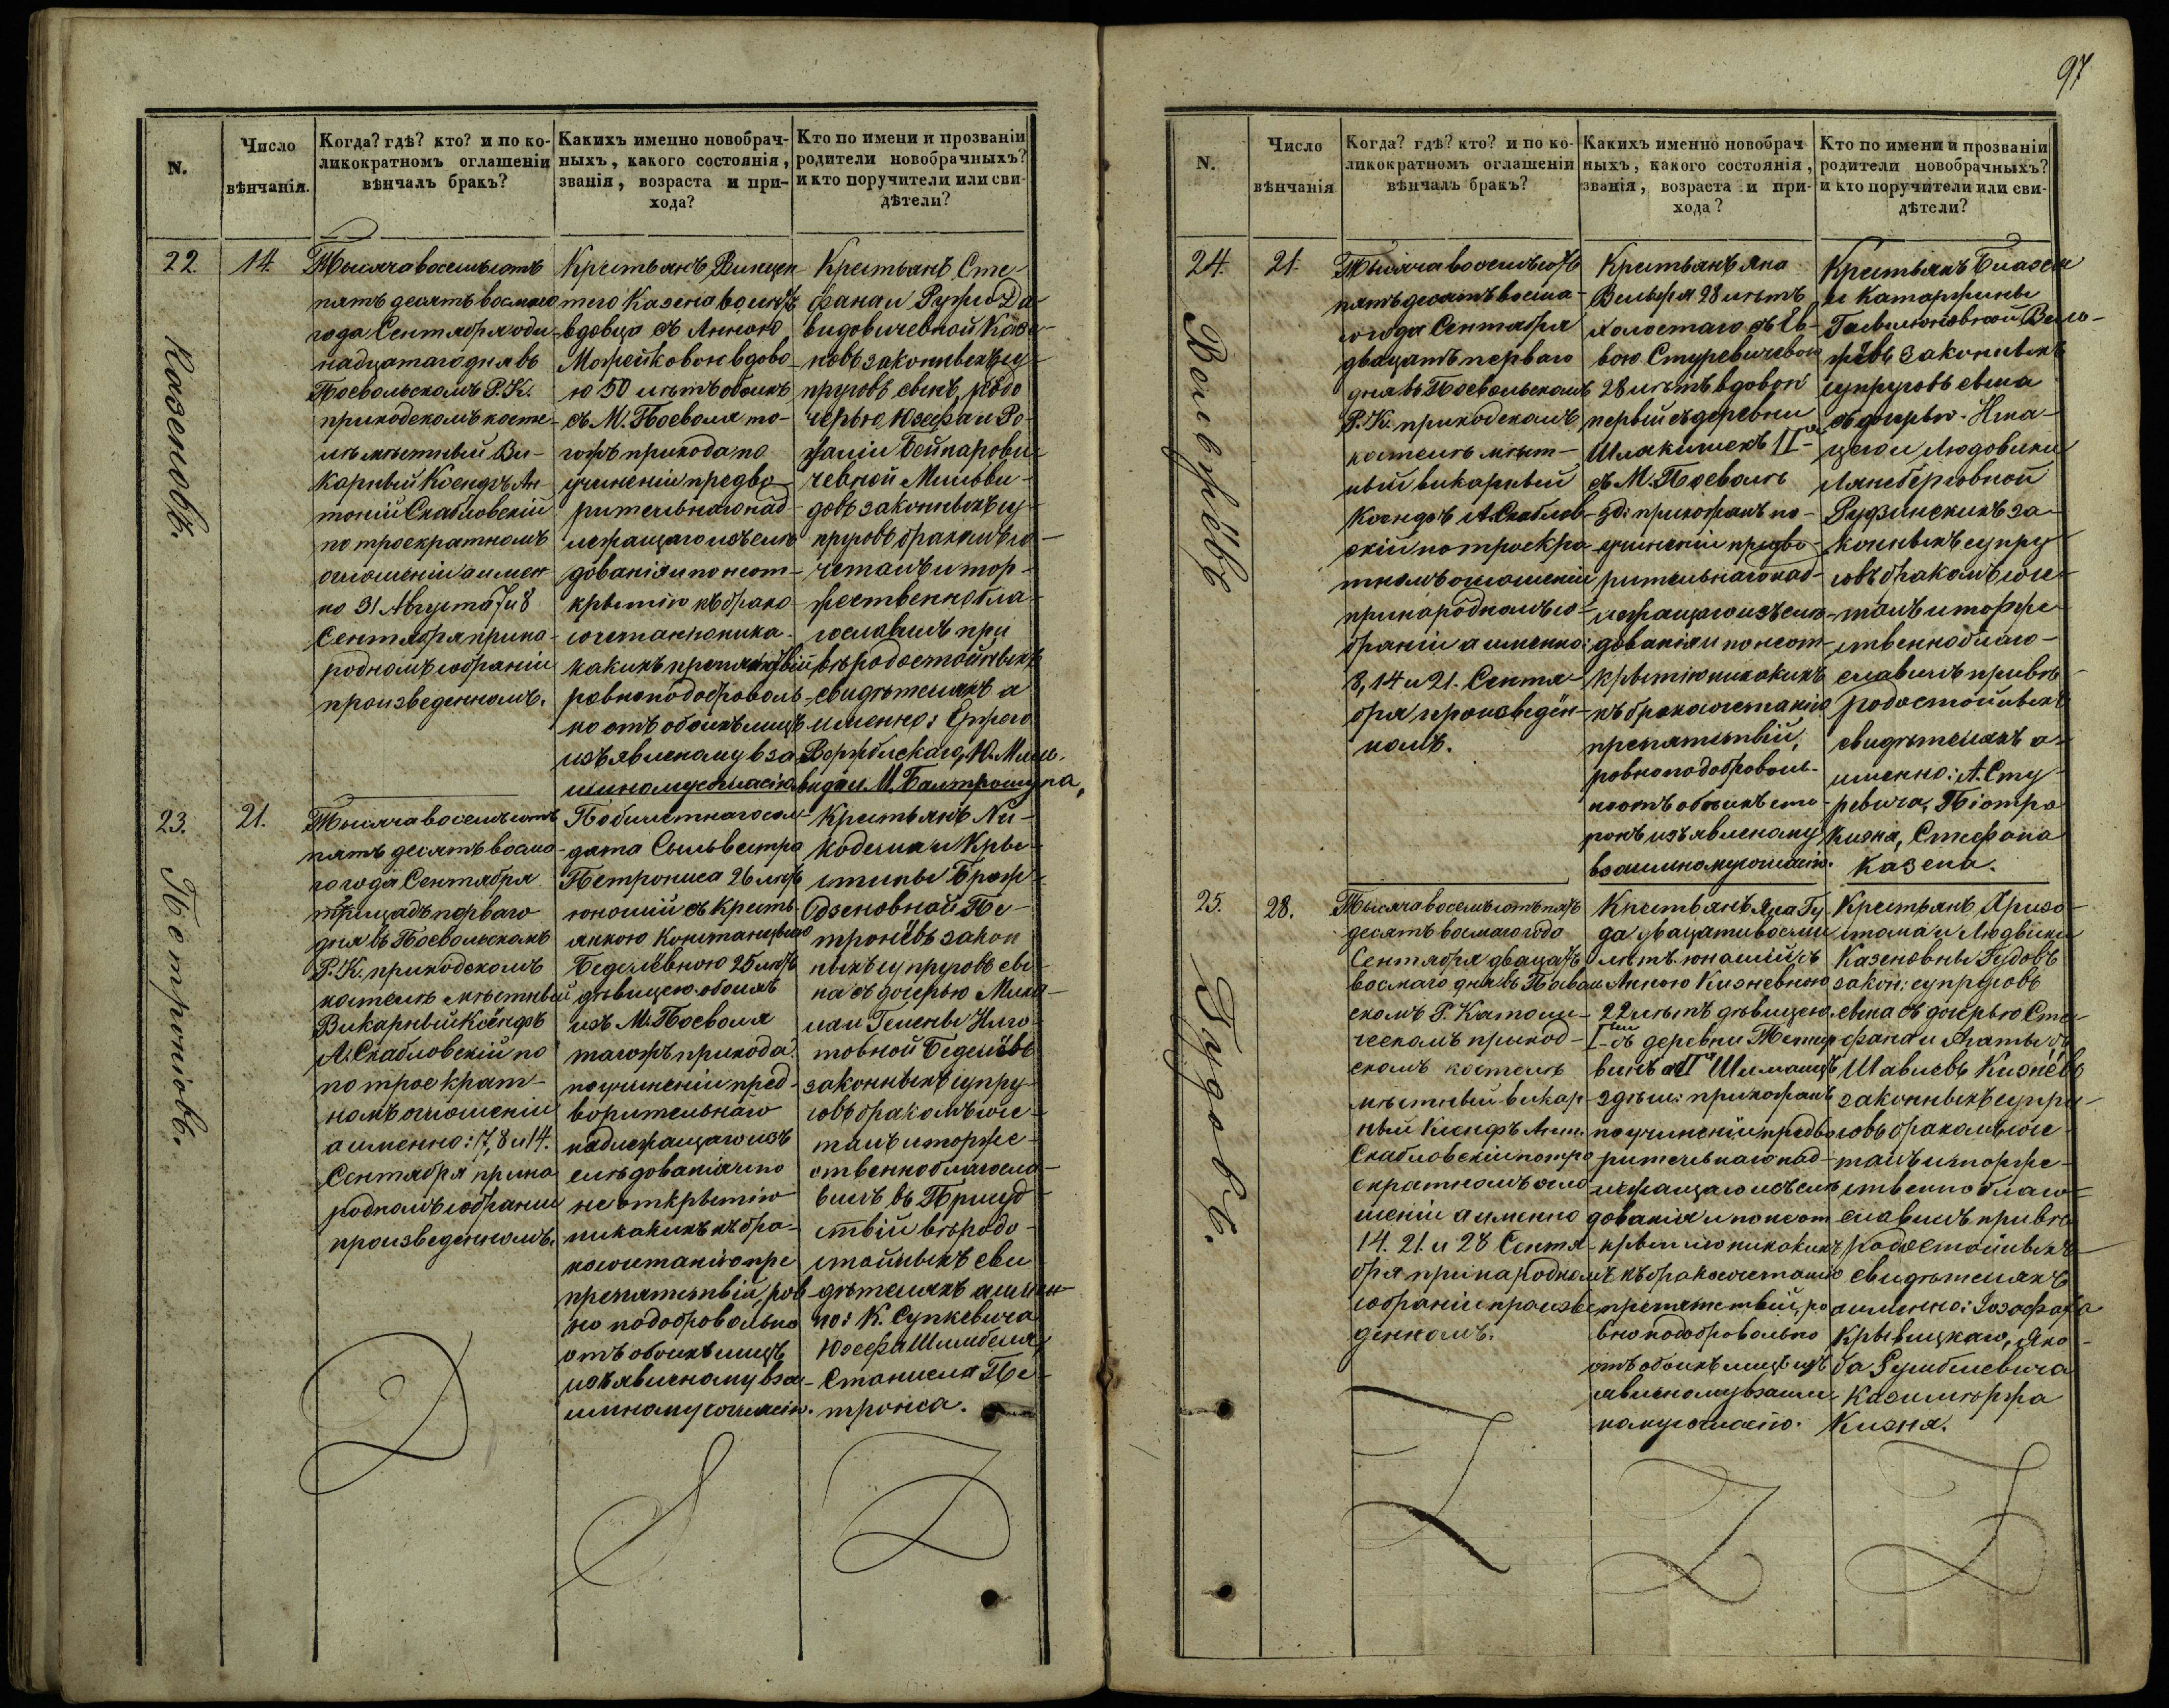 N.
Число
вѣнчанія.
Когда? гдѣ? кто? и по ко-
ликократномъ оглашеніи
вѣнчалъ бракъ?
Какихъ именно новобрач-
ныхъ, какого состоянія,
званія, возраста и при-
хода?
Кто по имени и прозванію
родители новобрачныхъ?
и кто поручители или сви-
дѣтели?
22.
14.
Казеновъ.
Тысяча восемъсотъ
пятъдесятъ восмаго
года Сентября
надцатаго дня въ
Поевольскомъ Р. К.
приходскомъ косте-
лѣ мѣстный Ви-
карный Ксендзъ Ан-
тоній Скабловскій
по троекратномъ
оглошеніи а имен
но 31 Августа 7 и 8
Сентября прина-
родномъ собраніи
произведенномъ.
Крестьянъ Винцен
того Казена
вдовца съ Анною
Можейковою вдово
ю 50 лѣтъ обоихъ
съ М. Поеволя то-
гожъ прихода по
учиненіи предва-
рительнаго над
лежащаго изслѣ
дованія и по неот-
крытію къ брако
сочетанію ника-
какихъ препятствій
ровно подоброволь
но отъ обоихъ лицъ
изъявленому вза
имному согласію
Крестьянъ Сте-
фана и Руфи Да-
видовичевной Казе-
новъ законныхъ су-
пруговъ сынъ, съ до
черью Юзефа и Ро-
заліи
чевной Мильви-
довъ законныхъ су-
пруговъ бракомъ со-
четалъ и тор-
жественно бла-
гословилъ при
вѣродостойныхъ
свидѣтеляхъ а
именно:
видаи М. Балтрошуна,
23.
21.
Петроніовъ.
Тысяча восемъсотъ
пятъ десятъ восма-
го года Сентября
дня въ Поевольскомъ
Р. К. приходскомъ
костелѣ мѣстный
Викарный Ксёндзъ
А. Скабловскій по
по троекрат-
номъ оглошеніи
а именно: 7, 8 и 14.
Сентября прина
родномъ собраніи
произведенномъ.
дата Сыльвестра
Петрониса 26 лѣтъ
юношій съ Кресть-
янкою Констанціею
Беделёвною 25 лѣтъ
дѣвицею обоихъ
изъ М. Поеволя
тагожъ прихода
по учиненіи пред-
ворительнаго
надлежащаго изъ
слѣдованія и по
не открытію
никакихъ къ бра-
косочетанію пре
препятствій, ров
но подобровольно
отъ обоихъ лицъ
изъявленому вза-
имному согласію.
Крестьянъ Ни-
кодема и Кры-
стины
Одзеновной Пе-
тронёвъ закон
ныхъ супруговъ сы-
на съ дочерью Мика-
лая Гелены
товной Беделёвъ
законныхъ супру-
говъ бракомъ соче-
талъ и торже-
ственно благосло-
вилъ въ Присуд
ствіи вѣродо-
стойныхъ сви
дѣтеляхъ а имен
но: К. Сункевича
Юзефа Шимбеля,
Станислa Пе-
трониса.
97
N.
Число
вѣнчанія
Когда? гдѣ? кто? и по ко-
ликократномъ оглашеніи
вѣнчалъ бракъ?
Какихъ именно новобрач
ныхъ, какого состоянія,
званія, возраста и при-
хода?
Кто по имени и прозванію
родители новобрачныхъ?
и кто поручители или сви-
дѣтели?
24.
21.
Вельжёвъ
Тысяча восемъсотъ
пятъдесятъ восма-
го года Сентября
двацатъ перваго
дня въ Поевольскомъ
Р. К. приходскомъ
костелѣ мѣст-
ный викарный
Ксендзъ А. Скаблов-
скій по троекра-
тномъ оглошеніи
принародномъ со-
браніи а именно:
8, 14 и 21. Сентя-
бря произведён-
номъ.
Крестьянъ Яна
Вельжя 28 лѣтъ
холостаго съ Ев-
вою Стуревичевою
28 лѣтъ вдовой
первый съ деревни
съ М. Поеволь
учиненіи предво-
рительнаго над-
лежащаго изъслѣ-
дованія и по неот-
крытію никакихъ
къ бракосочетанію
препятствій,
ровно подоброволь-
но отъ обоихъ сто-
ронъ изъявленому
взаимному согласію.
Крестьянъ Блажея
и Катаржины
жёвъ законныхъ
супруговъ сына
съ дочерью Игна-
цего и Людовики
Рудзинскихъ за-
конныхъ супру-
говъ бракомъ соче-
талъ и торже-
ственно благо-
славилъ при вѣ-
родостойныхъ
свидѣтеляхъ а-
именно: А. Сту-
ревича, Піотра
Кизня, Стефана
Казена.
25.
28.
Гудовъ.
Тысяча восемъсотъ пятъ
десятъ восмаго года
Сентября двацатъ
восмаго дня въ Поевол
скомъ Р. Католи-
ческомъ приход-
скомъ костелѣ
мѣстный викар-
ный Ксендзъ Ант.
Скабловскій по тро
екратномъ огло
шеніи а именно
14. 21. и 28 Сентя-
бря принародномъ
собраніи произве
денномъ.
Крестьянъ Яна Гу
да двацати восми
лѣтъ юношій съ
Анною Кизневною
22 лѣтъ дѣвицею
по учиненіи предва
рительнаго над-
лежащаго изслѣ
дованія и по неот
крытію никакихъ
къ бракосочетанію
препятствій, ро
вно подобровольно
отъ обоихъ лицъ изъ
явленому взаим
ному согласію.
Крестьянъ Хризо-
стома и Людвіки
Казеновны Гудовъ
закон: супруговъ
сына съ дочерью Сте-
фана и Агаты съ
Шавлевъ Кизнёвъ
законныхъ супру-
говъ бракомъ соче-
талъ и торже-
ственно благо-
славилъ при вѣ-
родостойныхъ
свидѣтеляхъ
а именно: Іозафата
Крывицкаго, Яко-
ба Румблевича
Казимержа
Кизня.